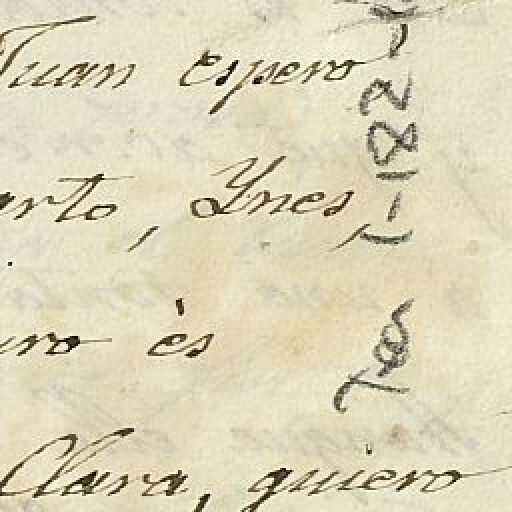 Juan espero
arto, Ynes,
uro ès
Clara, quiero
1-182-